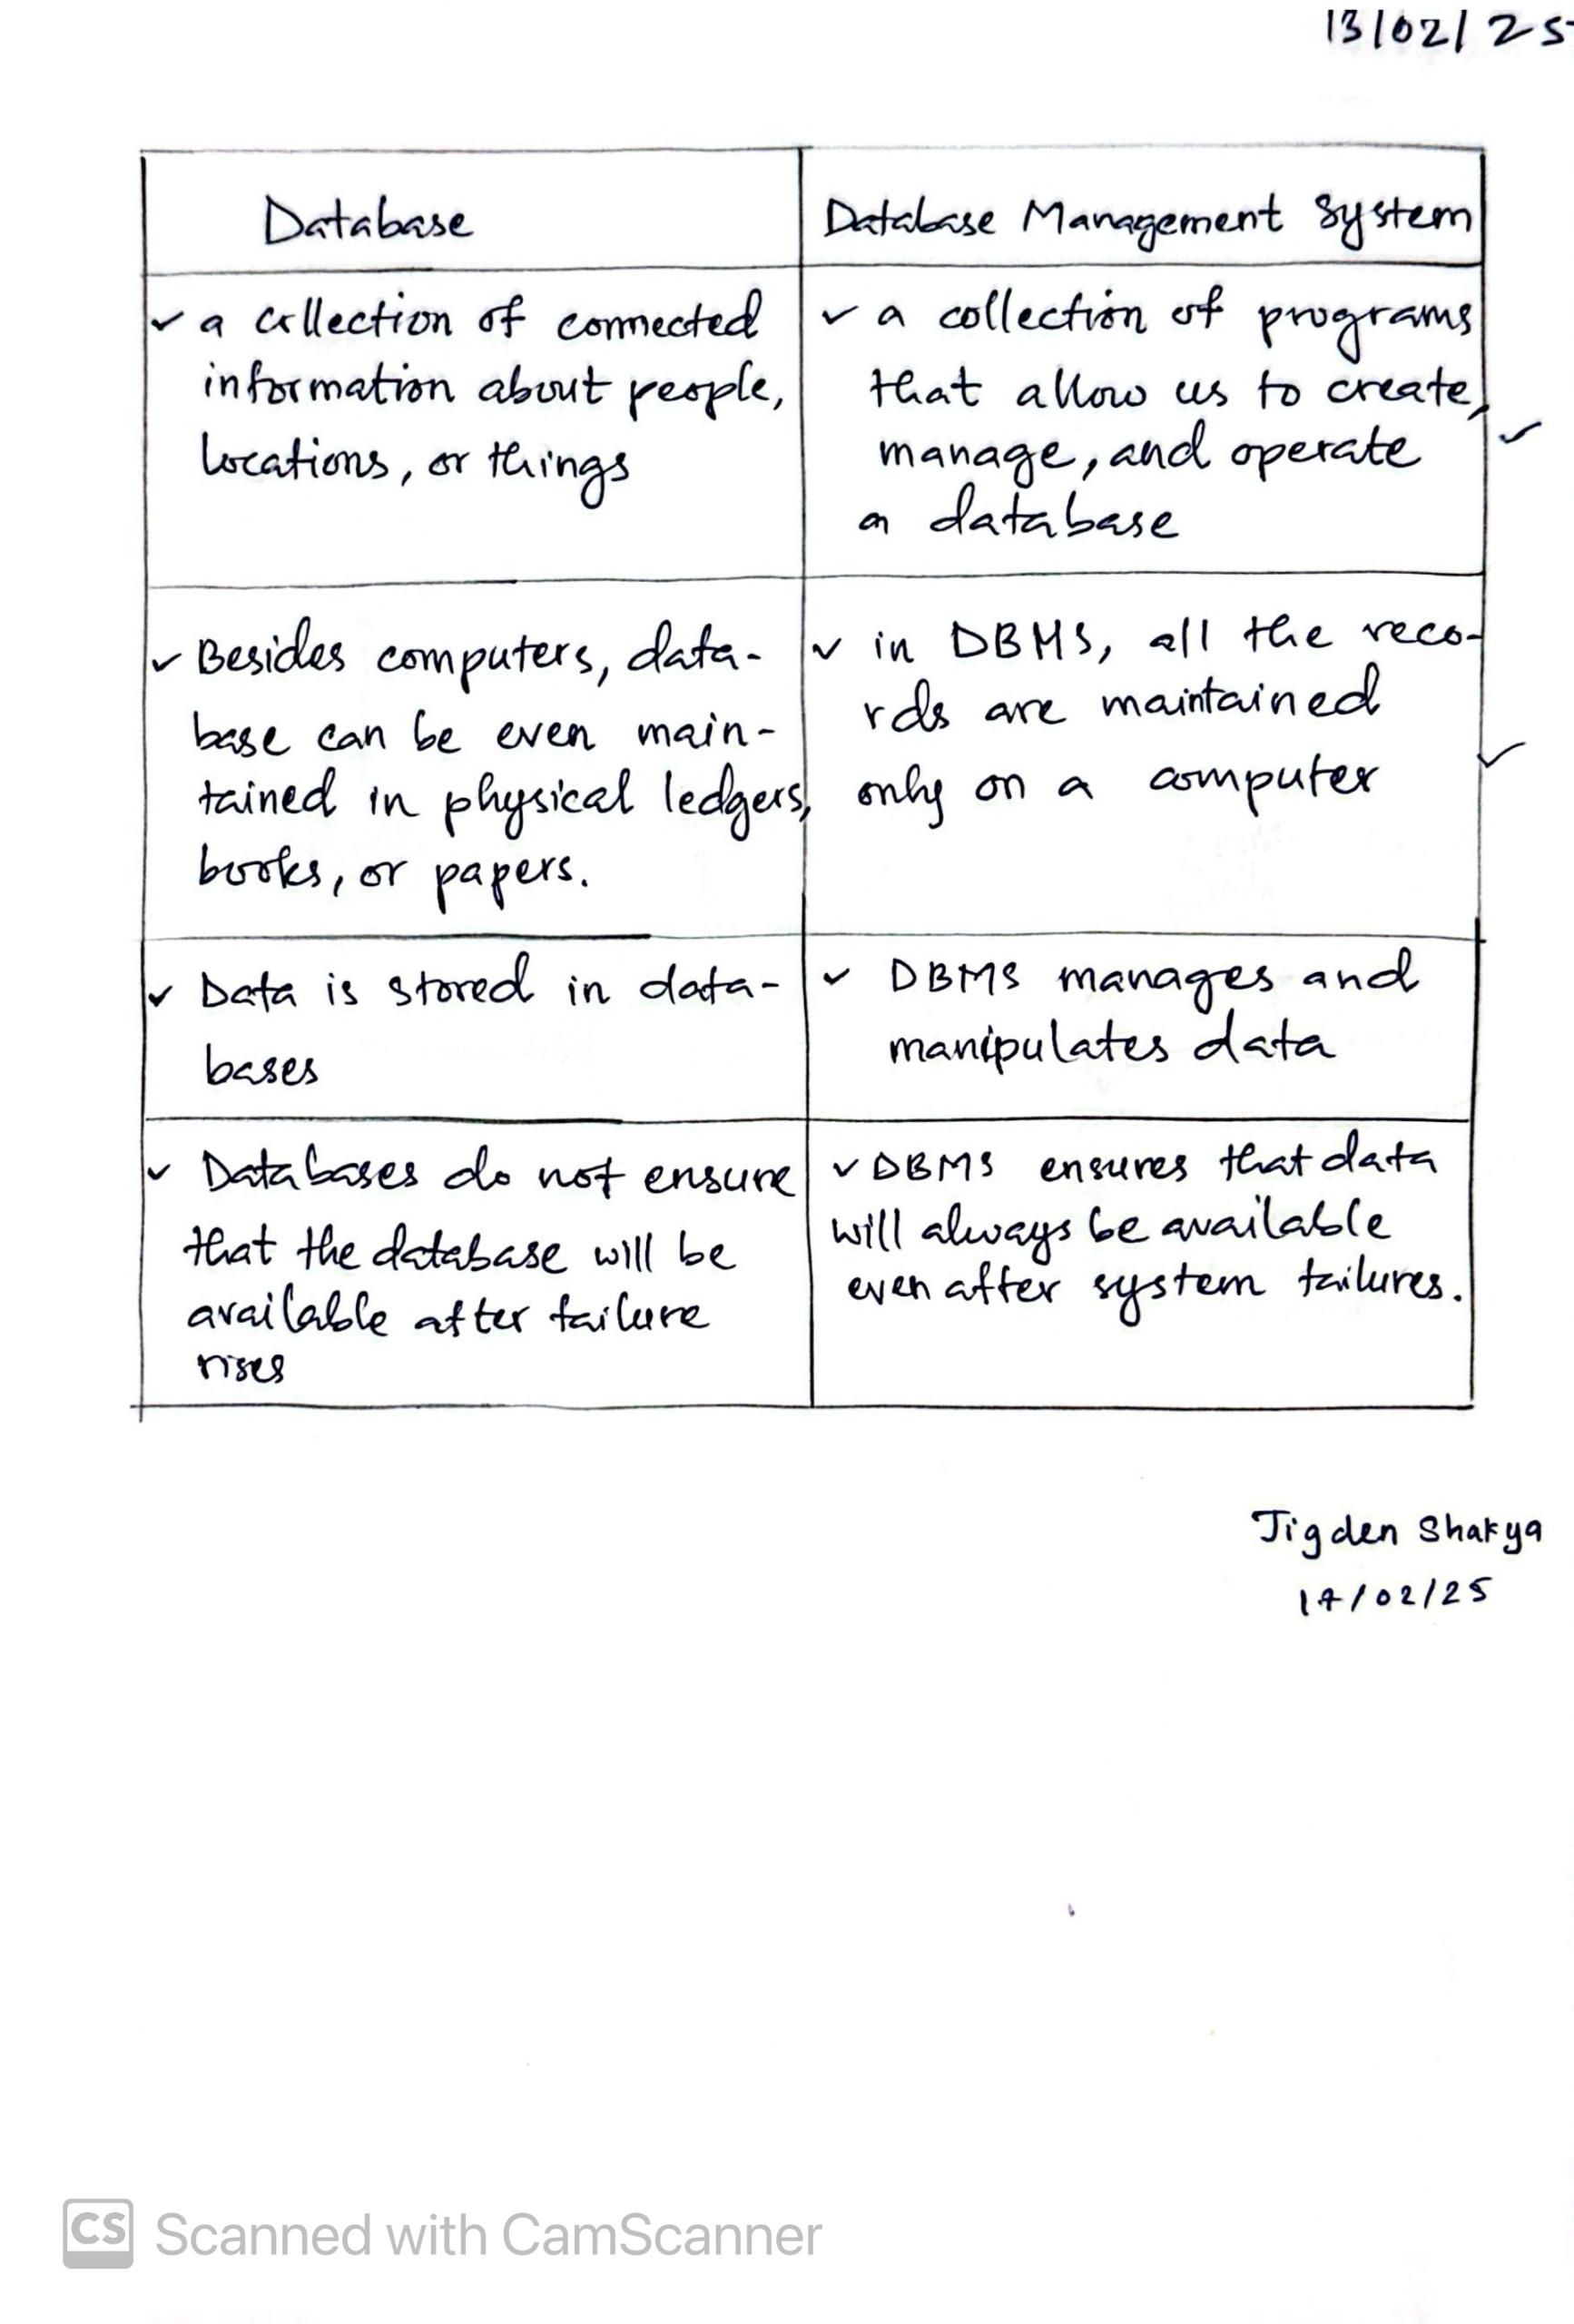 13/02/25
Database
Database Management System
✓ a collection of connected
information about people,
locations, or things
✓ a collection of programs
that allow us to create,
manage, and operate
a database
✓ Besides computers, data-
base can be even main-
tained in physical ledgers,
books, or papers.
✓ in DBMS, all the reco-
rds are maintained
only on a computer
✓ Data is stored in data-
bases
✓ DBMS manages and
manipulates data
✓ Databases do not ensure
that the database will be
available after failure
rises
✓ DBMS ensures that data
will always be available
even after system failures.
Jigden Shakya
17/02/25
CS Scanned with CamScanner